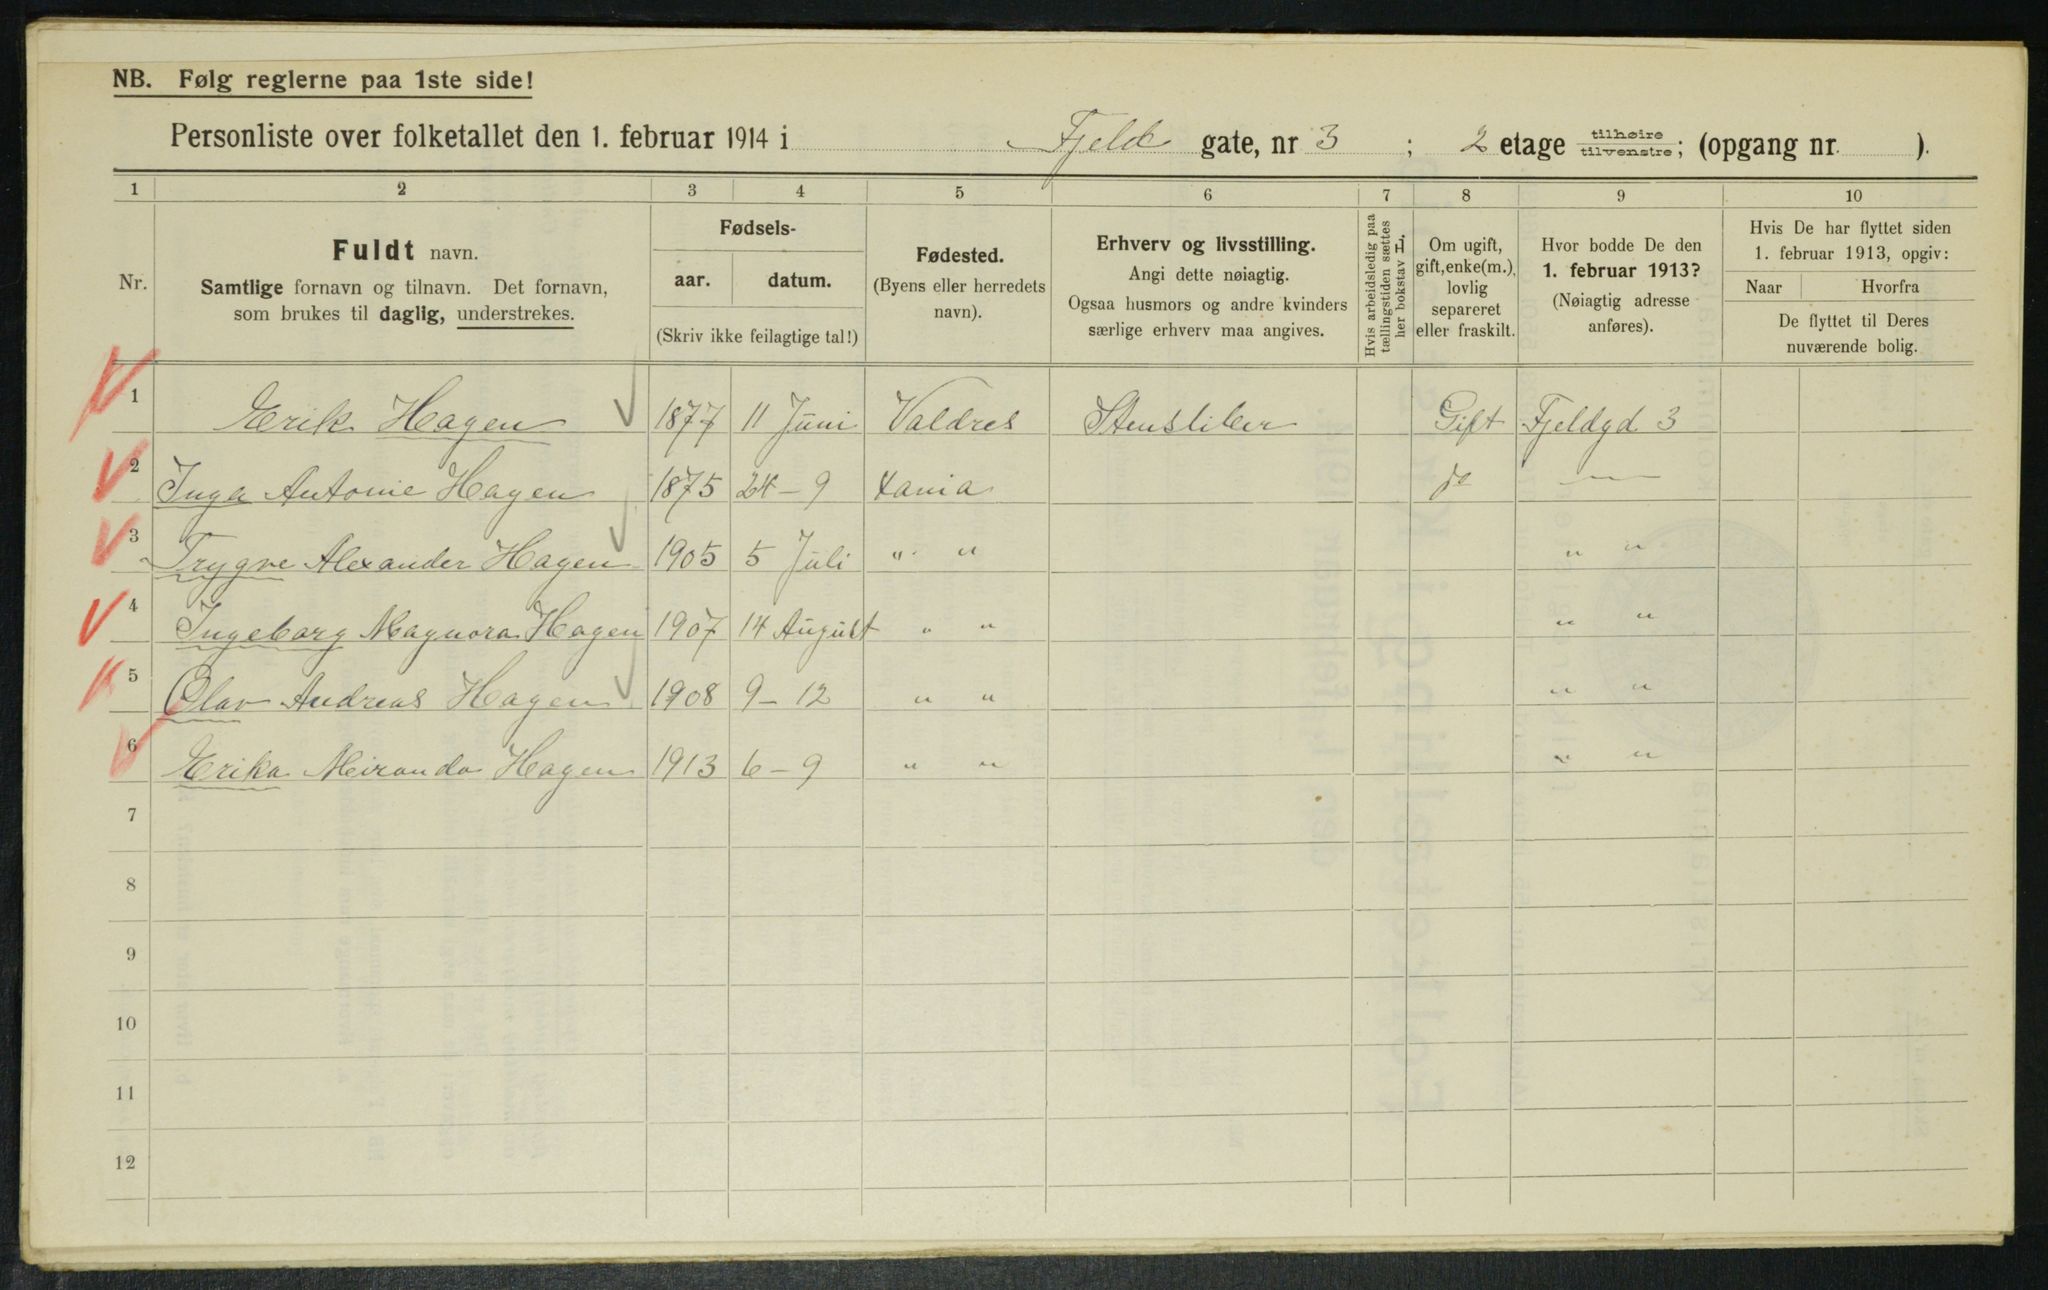 NB. Følg reglerne paa 1ste side!
Personliste over folketallet den 1. februar 1914 i Fjeld gate, nr 3 ; 2 etage tilhøire tilvenstre; (opgang nr. ).
1 2 3 4 5 6 7 8 9 10
Nr.
Fuldt navn.
Samtlige fornavn og tilnavn. Det fornavn,
som brukes til daglig, understrekes.
Fødsels-
aar. datum.
(Skriv ikke feilagtige tal!)
Fødested.
(Byens eller herredets
navn).
Erhverv og livsstilling.
Angi dette nøiagtig.
Ogsaa husmors og andre kvinders
særlige erhverv maa angives.
Hvis arbeidsledig paa
tællingstiden sættes
her bokstav L.
Om ugift,
gift, enke(m.),
lovlig
separeret
eller fraskilt.
Hvor bodde De den
1. februar 1913?
(Nøiagtig adresse
anføres).
Hvis De har flyttet siden
1. februar 1913, opgiv:
Naar Hvorfra
De flyttet til Deres
nuværende bolig.
1 Erik Hagen 1877 11 Juni Valdres Stensliber Gift Fjeldgd 3
2 Inga Antonie Hagen 1875 24 - 9 Xania do —
3 Trygve Alexander Hagen 1905 5 Juli " " " "
4 Ingeborg Magnora Hagen 1907 14 August " " " "
5 Olav Andreas Hagen 1908 9 - 12 " " " "
6 Erika Miranda Hagen 1913 6 - 9 " " " "
7
8
9
10
11
12